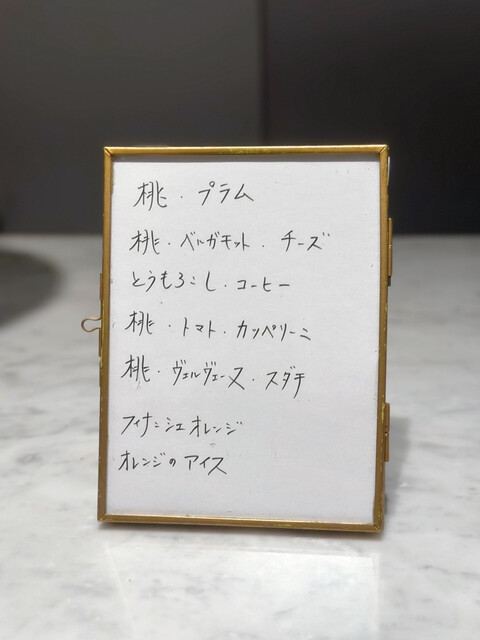 桃・プラム
桃・ベルガモット・チーズ
とうもろこし・コーヒー
桃・トマト・カッペリーニ
桃・ヴェルヴェーヌ・スダチ
フィナンシェオレンジ
オレンジのアイス